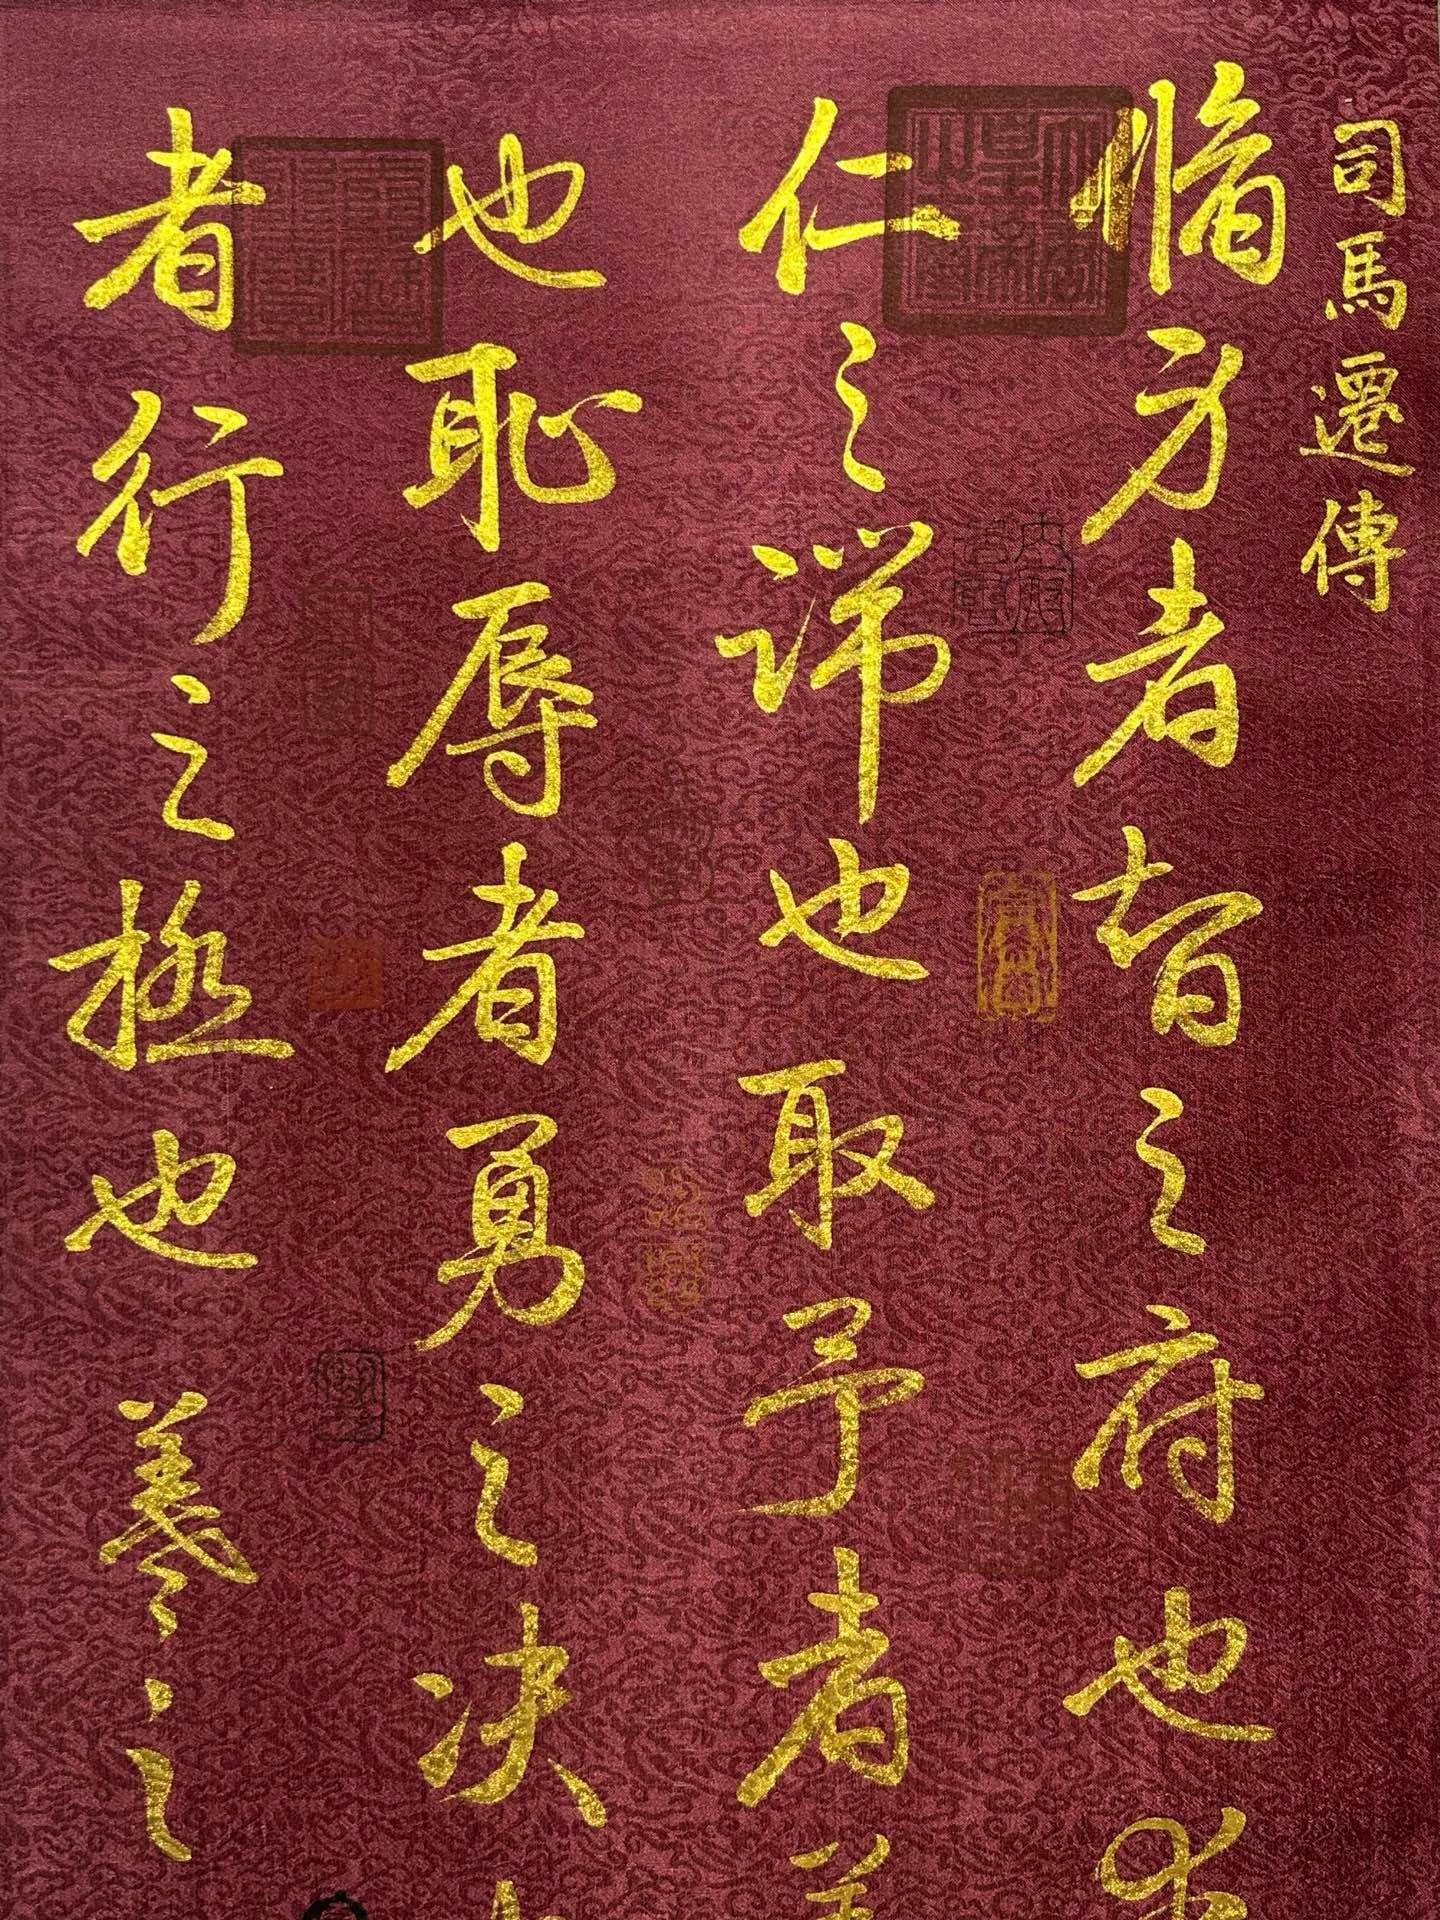 司馬遷傳
脩身者智之府也
仁之端也取予者
也恥辱者勇之决
者行之極也羲之